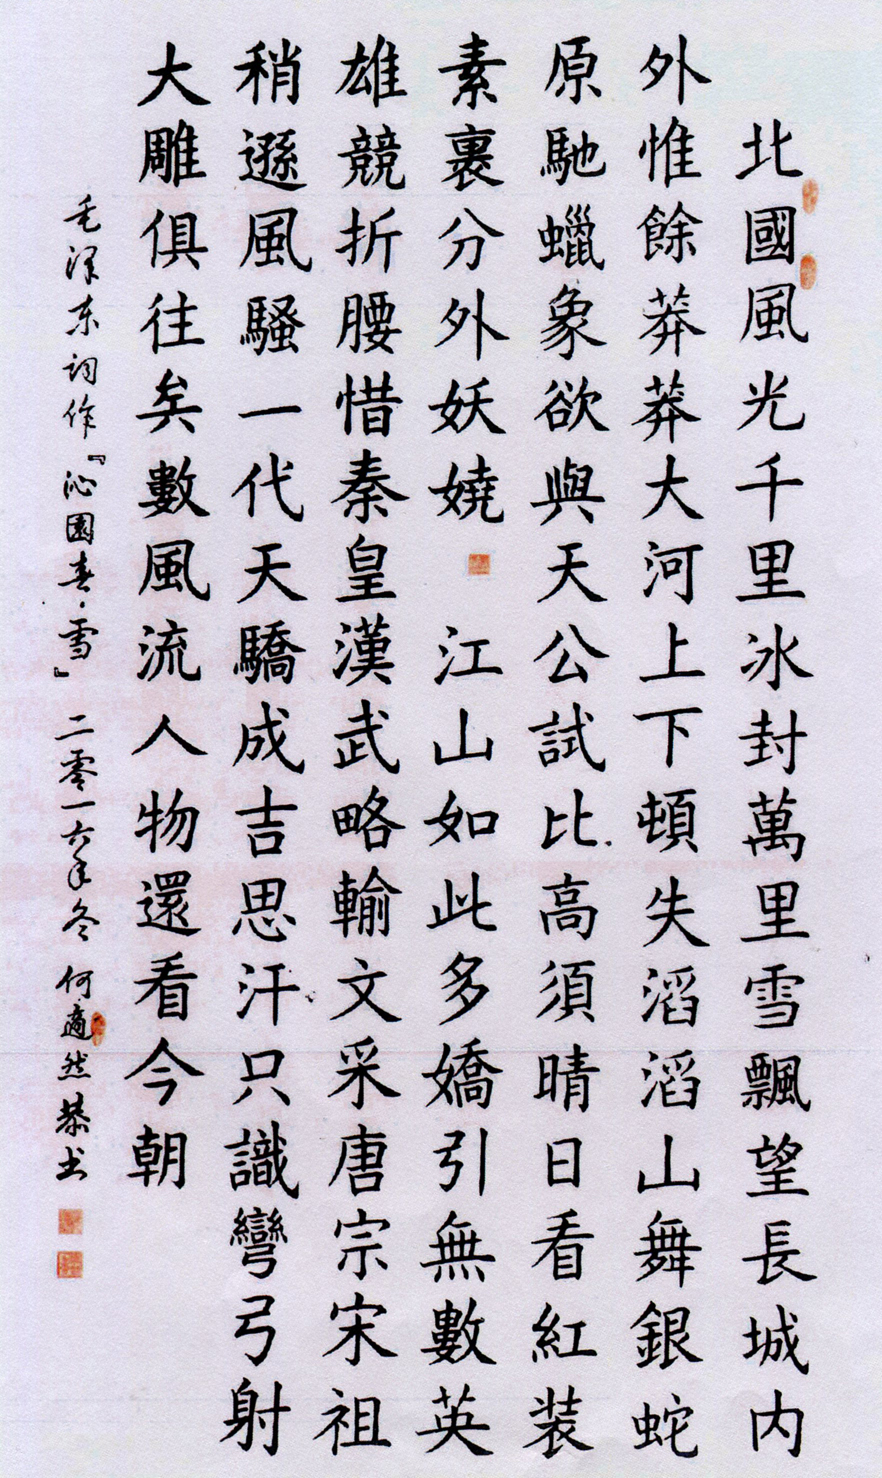 北國風光千里冰封萬里雪飄望長城内
外惟餘莽莽大河上下頓失滔滔山舞銀蛇
原馳蠟象欲與天公試比高須晴日看紅装
素裹分外妖嬈 江山如此多嬌引無數英
雄競折腰惜秦皇漢武略輸文采唐宗宋祖
稍遜風騷一代天驕成吉思汗只識彎弓射
大雕俱往矣數風流人物還看今朝
毛泽东词作『沁園春·雪』 二零一六年冬 何適然恭书